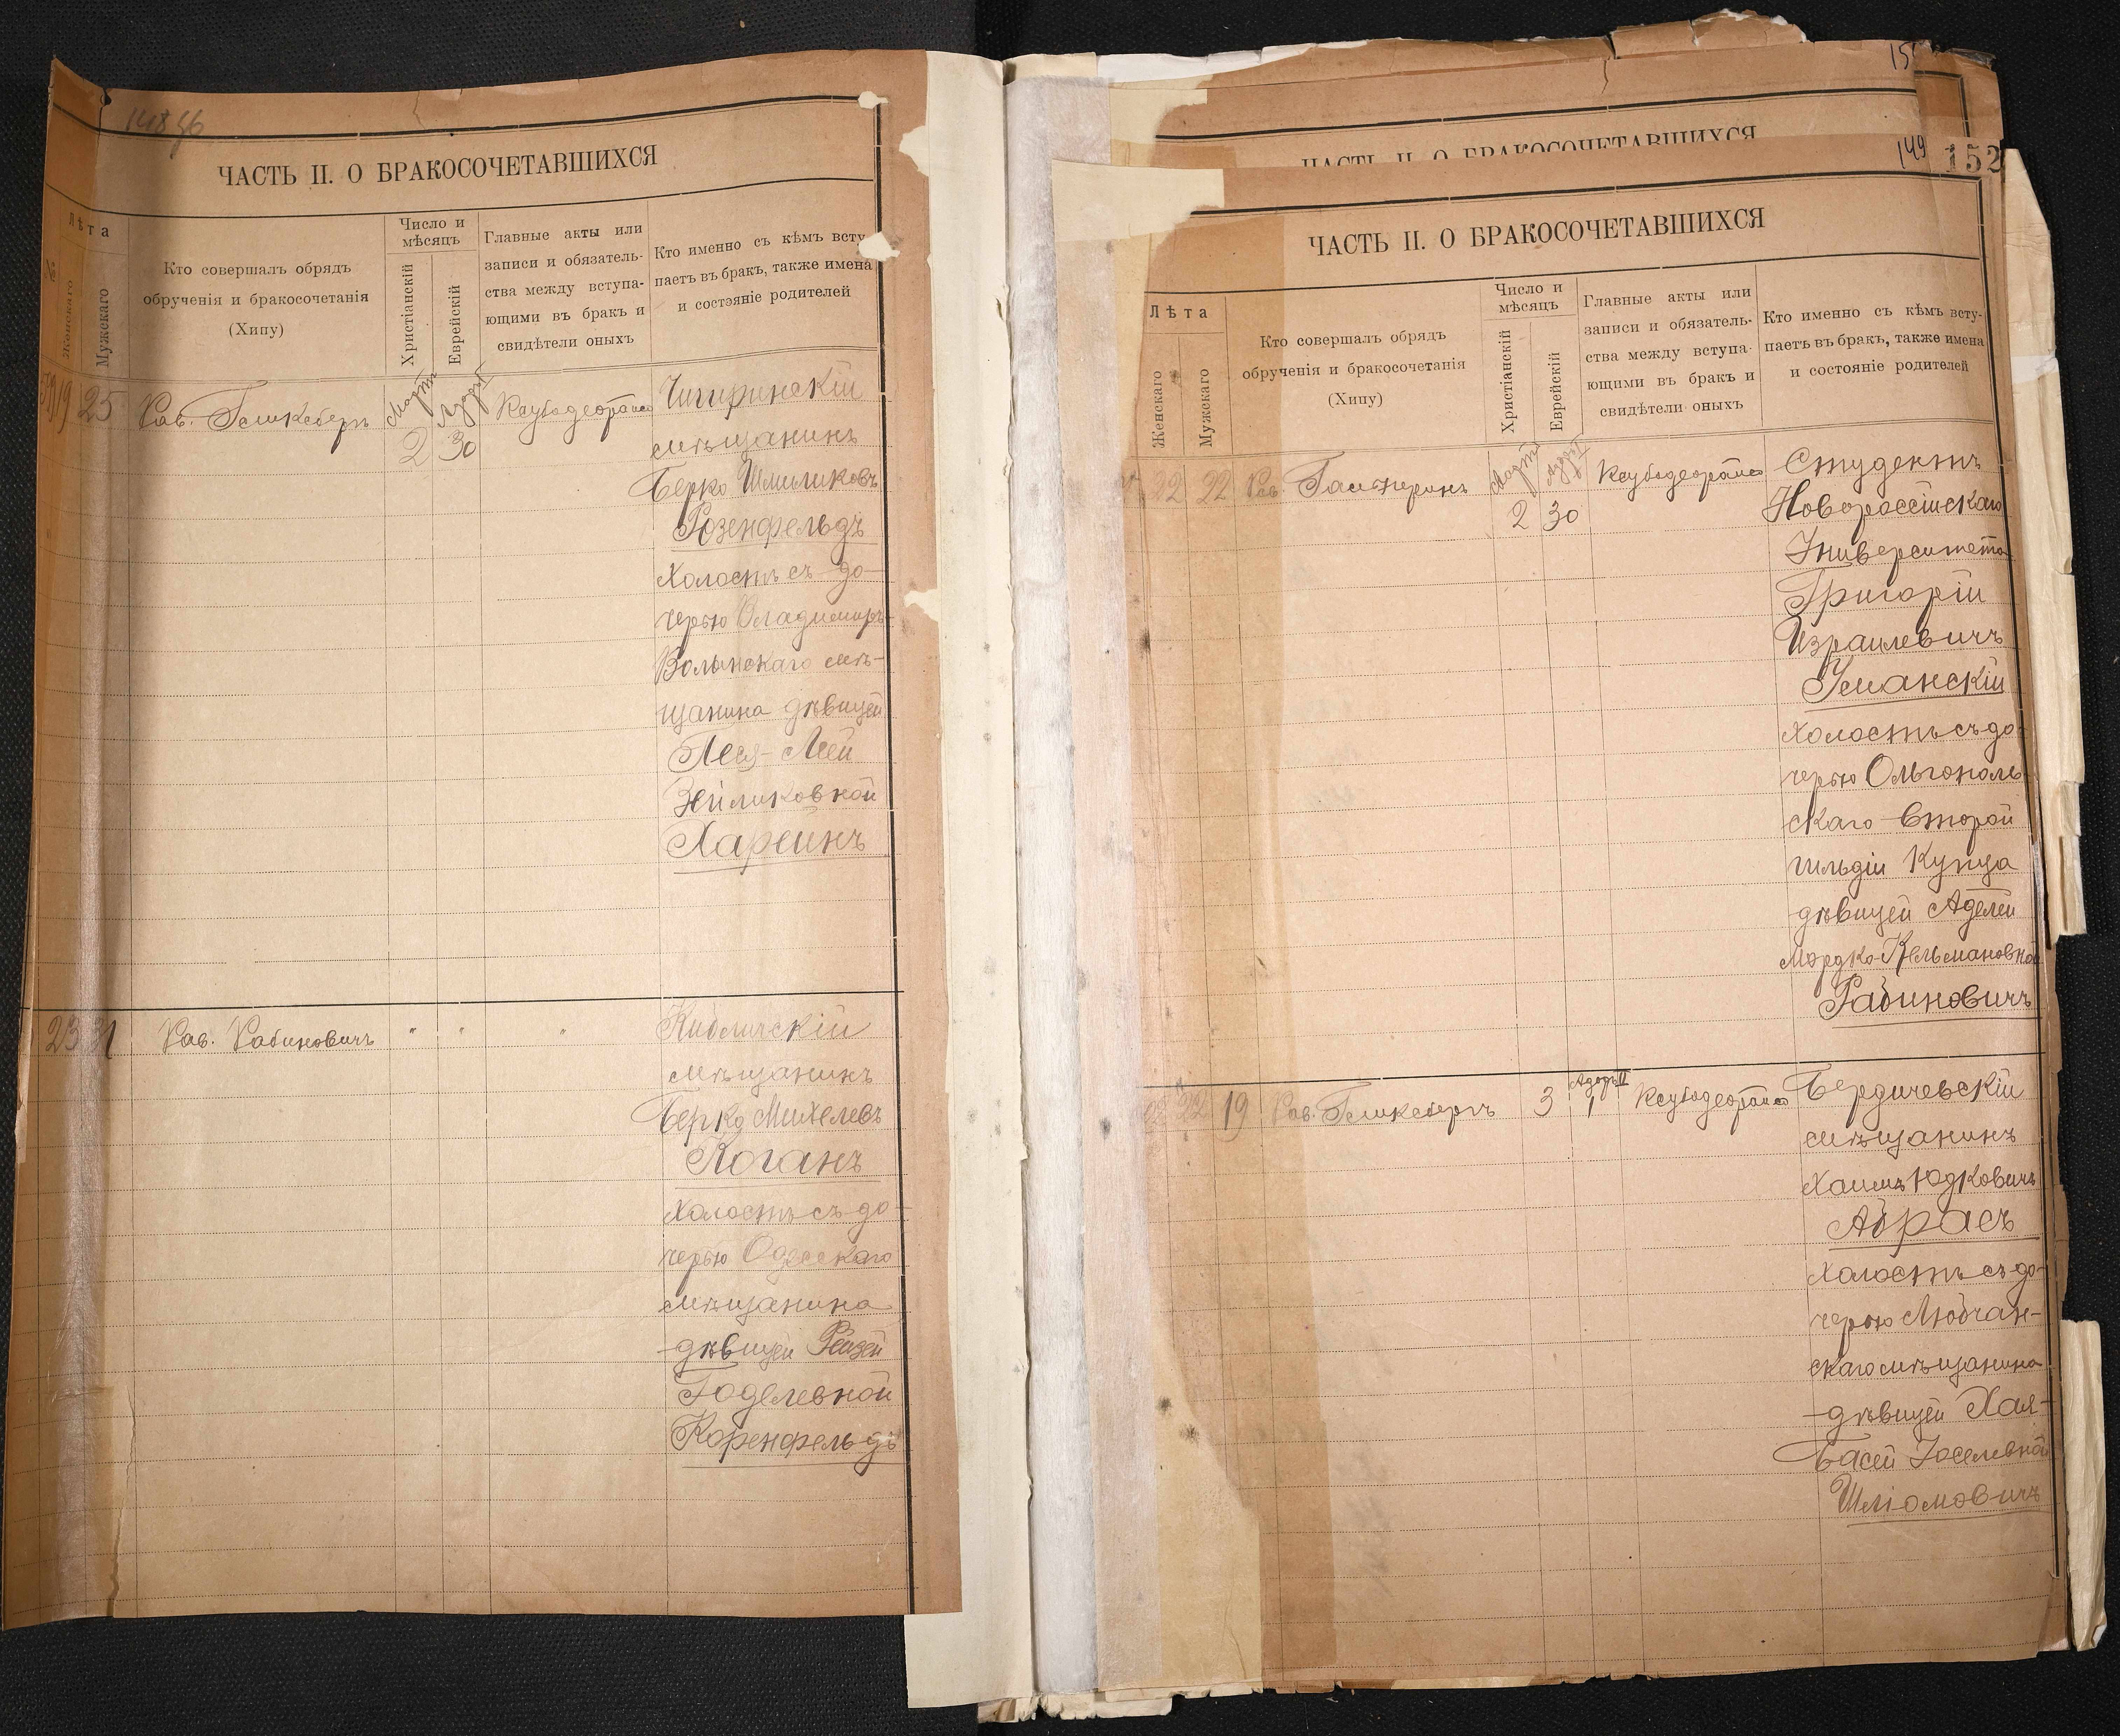 ЧАСТЬ II. О БРАКОСОЧЕТАВШИХСЯ
Лѣта
Женскаго
Мужскаго
Кто совершалъ обрядъ
обрученія и бракосочетанія
(Хипу)
Число и
мѣсяцъ
Христіанскій
Еврейскій
Главные акты или
записи и обязатель-
ства между вступа-
ющими въ бракъ и
свидѣтели оныхъ
Кто именно съ кѣмъ всту-
паетъ въ бракъ, также имена
и состояніе родителей
19 25 Рав. Гешкебергъ
Мартъ
2
30
Чигиринскій
мѣщанинъ
Берко Шмиликовъ
Розенфельдъ
холостъ съ до-
черью Владимиръ-
Волынскаго мѣ-
щанина дѣвицей
Песя-Леей
Зейликовной
23 31 Рав. Рабиновичъ " " "
мѣщанинъ
Берко Михелевъ
Коганъ
холостъ съ до-
черью Одесскаго
мѣщанина
дѣвицей Рейзей
Годелевной
Коренфельдъ
149
152
ЧАСТЬ II. О БРАКОСОЧЕТАВШИХСЯ
ЧАСТЬ II. О БРАКОСОЧЕТАВШИХСЯ
Лѣта
Женскаго
Мужскаго
Кто совершалъ обрядъ
обрученія и бракосочетанія
(Хипу)
Число и
мѣсяцъ
Христіанскій
Еврейскій
Главные акты или
записи и обязатель-
ства между вступа-
ющими въ бракъ и
свидѣтели оныхъ
Кто именно съ кѣмъ всту-
паетъ въ бракъ, также имена
и состояніе родителей
22 22 Рав.
Мартъ
2
30
Студентъ
Новороссійскаго
Университета
Григорій
Израилевичъ
Уманскій
холостъ съ до-
черью Ольгополь-
скаго второй
гильдіи купца
дѣвицей Аделей
Мордко-Кельмановной
Рабиновичъ
22 19 Рав. Гешкебергъ 3
Адоръ II
1
Бердичевскій
мѣщанинъ
Хаимъ Юдковичъ
Абрасъ
холостъ съ до-
черью Любчан-
скаго мѣщанина
дѣвицей Хая-
Басей Іоселевной
Шліомовичъ